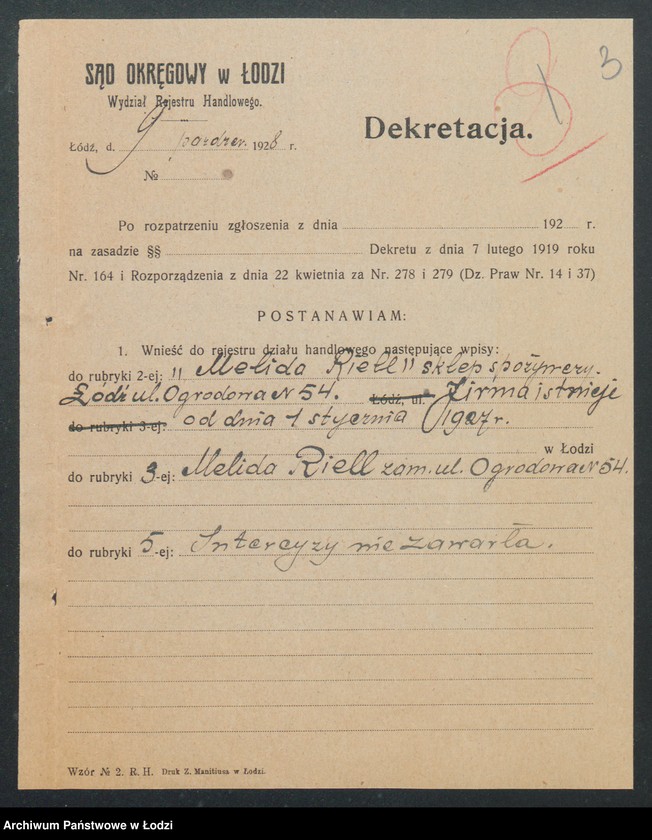 3
SĄD OKRĘGOWY w ŁODZI
Wydział Rejestru Handlowego.
Dekretacja.
Łódź, d. 9 paździer. 1928 r.
№
Po rozpatrzeniu zgłoszenia z dnia 192 r.
na zasadzie §§ Dekretu z dnia 7 lutego 1919 roku
Nr. 164 i Rozporządzenia z dnia 22 kwietnia za Nr. 278 i 279 (Dz. Praw Nr. 14 i 37)
POSTANAWIAM:
1. Wnieść do rejestru działu handlowego następujące wpisy:
do rubryki 2-ej: "Melida Riell" sklep spożywczy.
Łódź ul. Ogrodowa N 54. Łódź, ul. Firma istnieje
do rubryki 3-ej: od dnia 1 stycznia 1927 r.
w Łodzi
do rubryki 3-ej: Melida Riell zam. ul. Ogrodowa N 54.
do rubryki 5-ej: Intercyzy nie zawarła.
Wzór № 2. R. H. Druk Z. Manitiusa w Łodzi.
Archiwum Państwowe w Łodzi